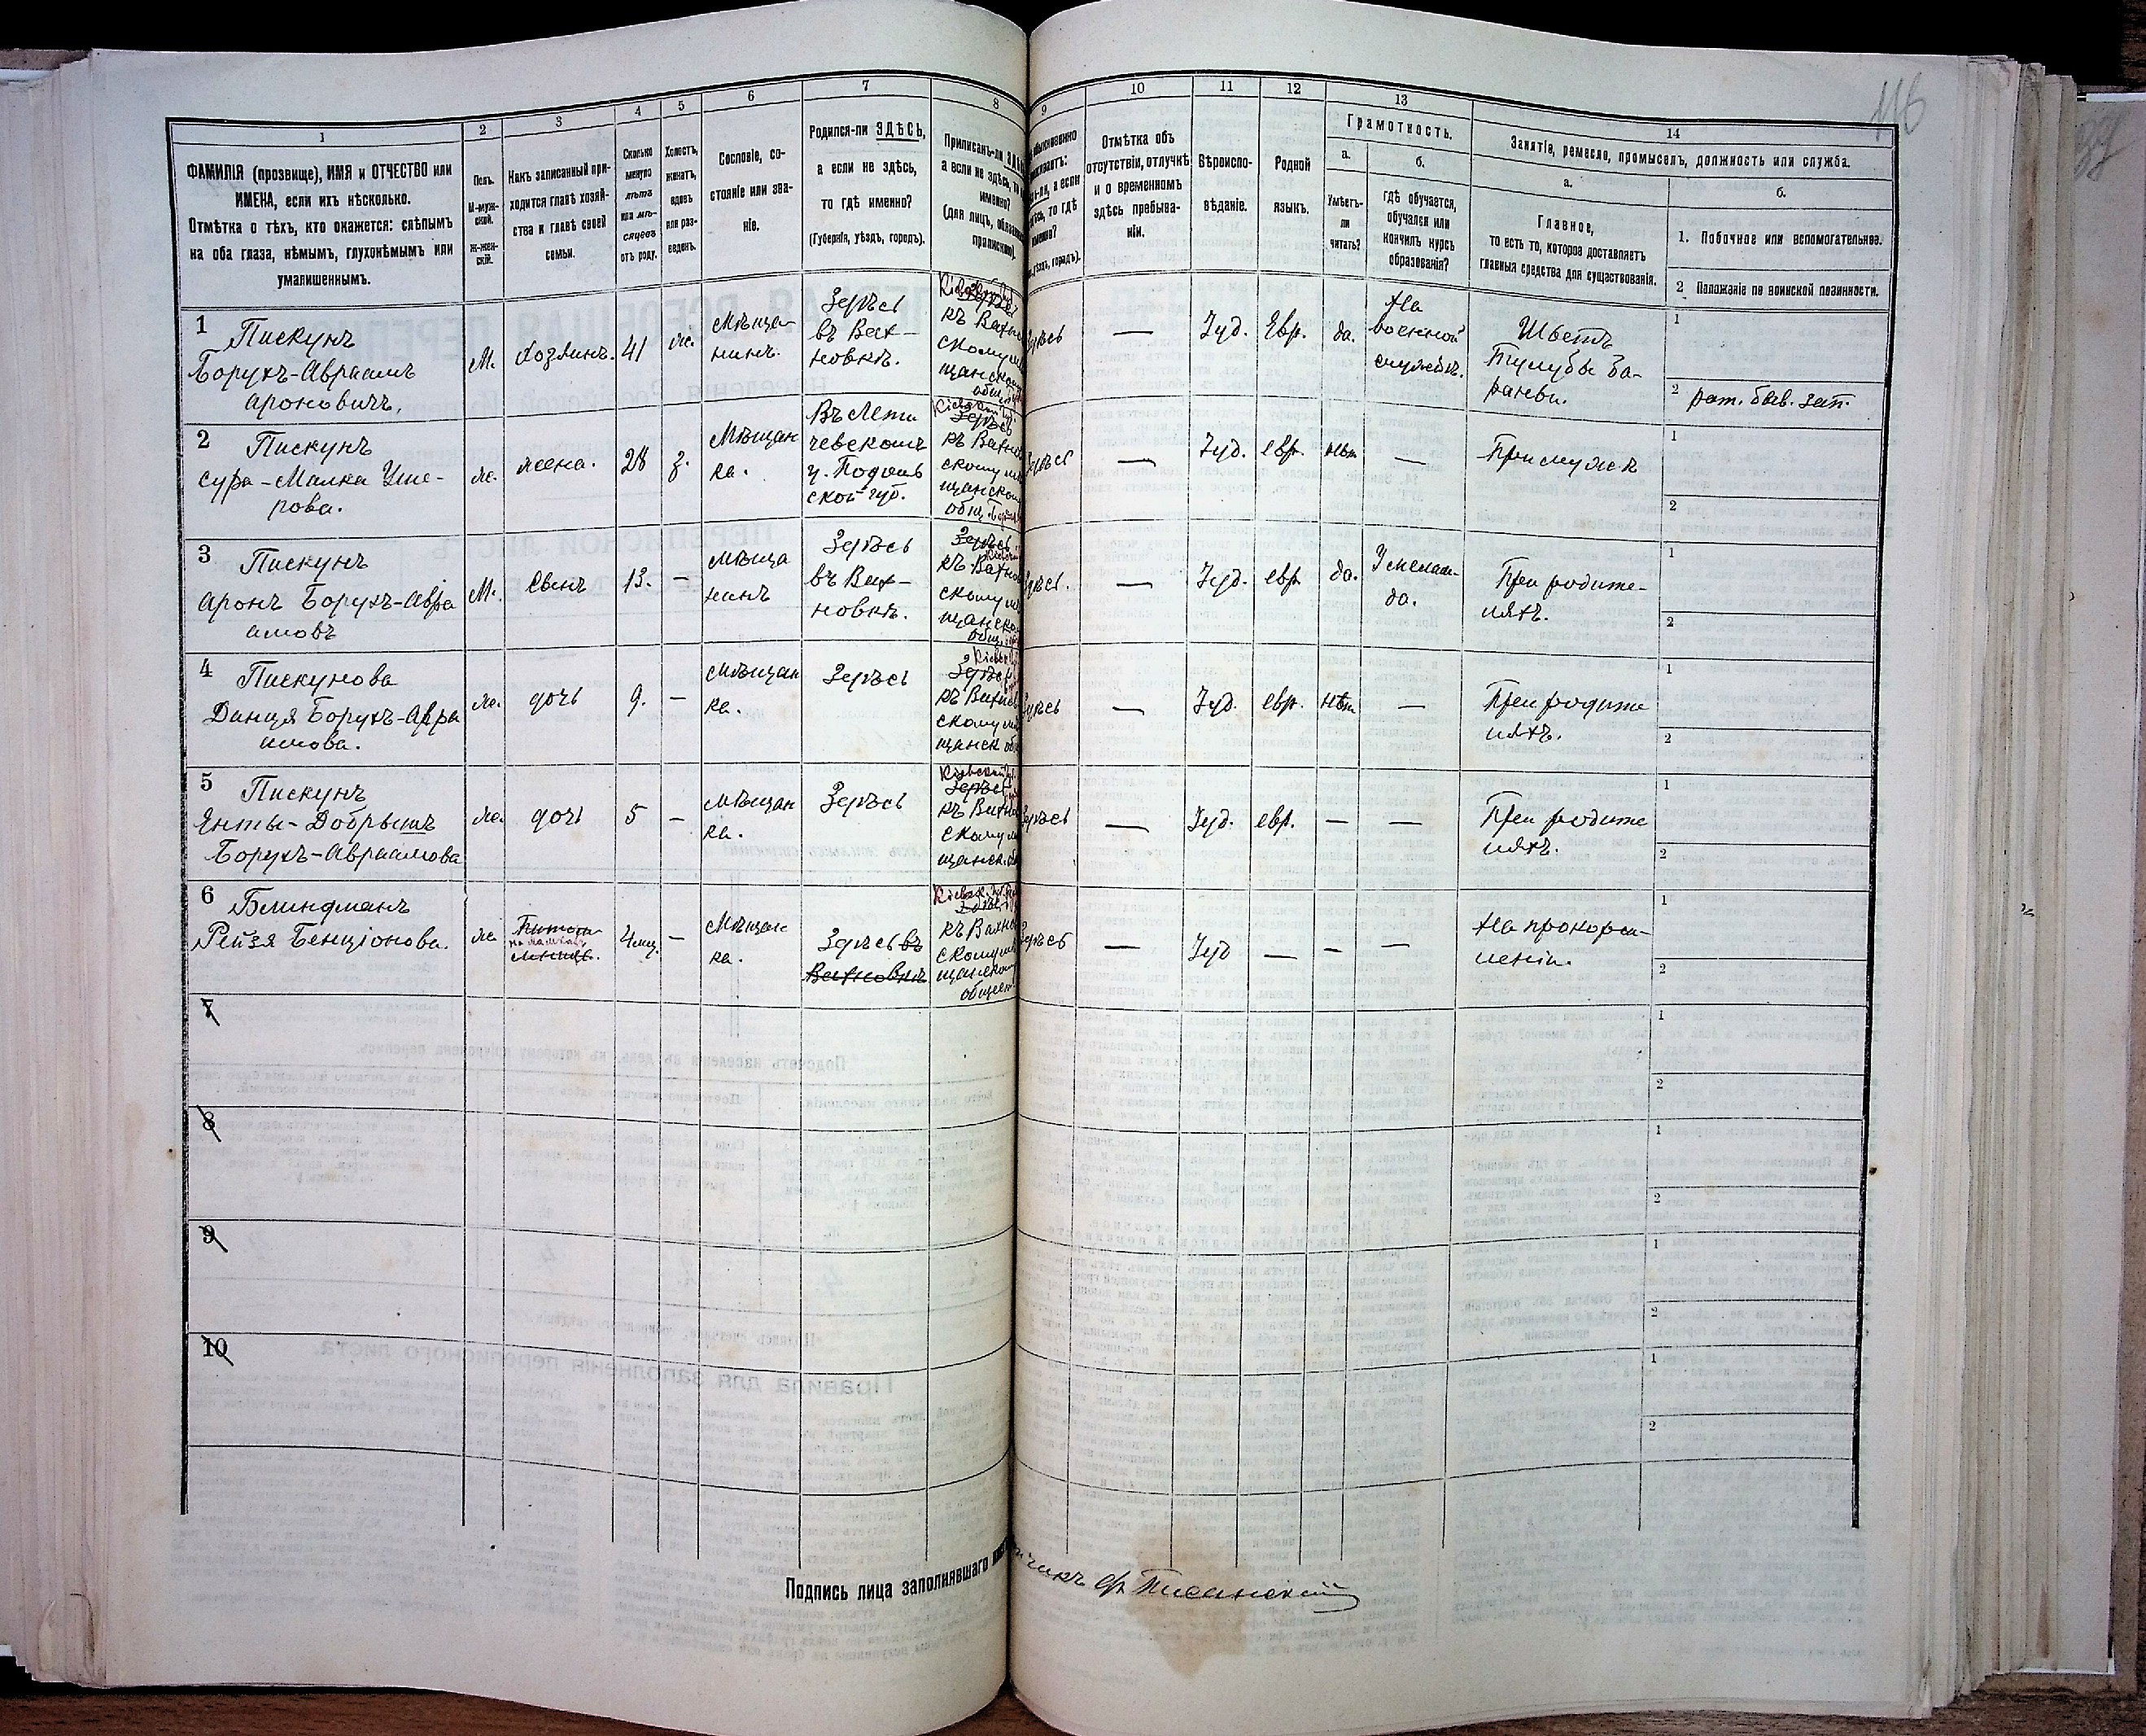 116
1
2
3
4
5
6
7
8
9
10
11
12
13
14
ФАМИЛІЯ (прозвище), ИМЯ и ОТЧЕСТВО или
ИМЕНА, если ихъ нѣсколько.
Отмѣтка о тѣхъ, кто окажется: слѣпымъ
на оба глаза, нѣмымъ, глухонѣмымъ или
умалишеннымъ.
Полъ.
М-муж-
ской.
Ж-жен-
скій.
Какъ записанный при-
ходится главѣ хозяй-
ства и главѣ своей
семьи.
Сколько
минуло
лѣтъ
или мѣ-
сяцевъ
отъ роду.
Холостъ,
женатъ,
вдовъ
или раз-
веденъ.
Сословіе, со-
стояніе или зва-
ніе.
Родился-ли ЗДѢСЬ,
а если не здѣсь,
то гдѣ именно?
(Губернія, уѣздъ, городъ).
Приписанъ-ли
а если не здѣсь,
именно?
(для лицъ,
Отмѣтка объ
отсутствіи, отлучкѣ
и о временномъ
здѣсь пребыва-
ніи.
Вѣроиспо-
вѣданіе.
Родной
языкъ.
Грамотность.
а.
Умѣетъ-
ли
читать?
б.
гдѣ обучается,
обучался или
кончилъ курсъ
образованія?
Занятіе, ремесло, промыселъ, должность или служба.
а.
Главное,
то есть то, которое доставляетъ
главныя средства для существованія.
б.
1. Побочное или вспомогательное.
2 Положеніе по воинской повинности.
1 Пискунъ
Борухъ-Авраамъ
Ароновичъ,
М.
Хозяинъ.
41
ж.
Мѣща-
нинъ.
Здѣсь
въ Вах-
новкѣ.
къ Вахно
скому мѣ
щанском
общ.
—
Іуд.
Евр.
да.
На
военной
службѣ.
Шьетъ
Тулубы ба-
раньи.
1
2 рат. быв. зап.
2 Пискунъ
Сура-Малка Уше-
рова.
ж.
жена.
28
з.
Мѣщан
ка.
Въ Лети
чевскомъ
у. Подоль
ской губ.
къ Вахно
скому мѣ
щанском
общ.
—
Іуд.
евр.
нѣт
—
При мужѣ
1
2
3 Пискунъ
Аронъ Борухъ-Авра
амовъ
М.
Сынъ
13.
—
Мѣща
нинъ
Здѣсь
въ Вах-
новкѣ.
Здѣсь
къ Вахно
скому мѣ
щанско
общ.
—
Іуд.
евр.
да.
У мелам-
да.
При родите-
ляхъ.
1
2
4 Пискунова
Данця Борухъ-Авра
амова.
ж.
дочь
9.
—
Мѣщан
ка.
Здѣсь
Здѣсь
къ Вахно
скому мѣ
щанск об
—
Іуд.
евр.
нѣт
—
При родите
ляхъ.
1
2
5 Пискунъ
Енты-Добрышъ
Борухъ-Авраамова
ж.
дочь
5
—
Мѣщан
ка.
Здѣсь
Здѣсь
къ Вахно
скому мѣ
щанск.
—
Іуд.
евр.
—
—
При родите
ляхъ.
1
2
6 Блиндманъ
Рейзя Бенціонова.
ж
4 мц.
—
Мѣщан
ка.
Здѣсь въ
Вахновкѣ
къ Вахно
скому мѣ
щанском
общест.
—
Іуд
—
—
—
На прокорм-
леніи.
1
2
7
1
2
8
1
2
9
1
2
10
1
2
Подпись лица заполнявшаго